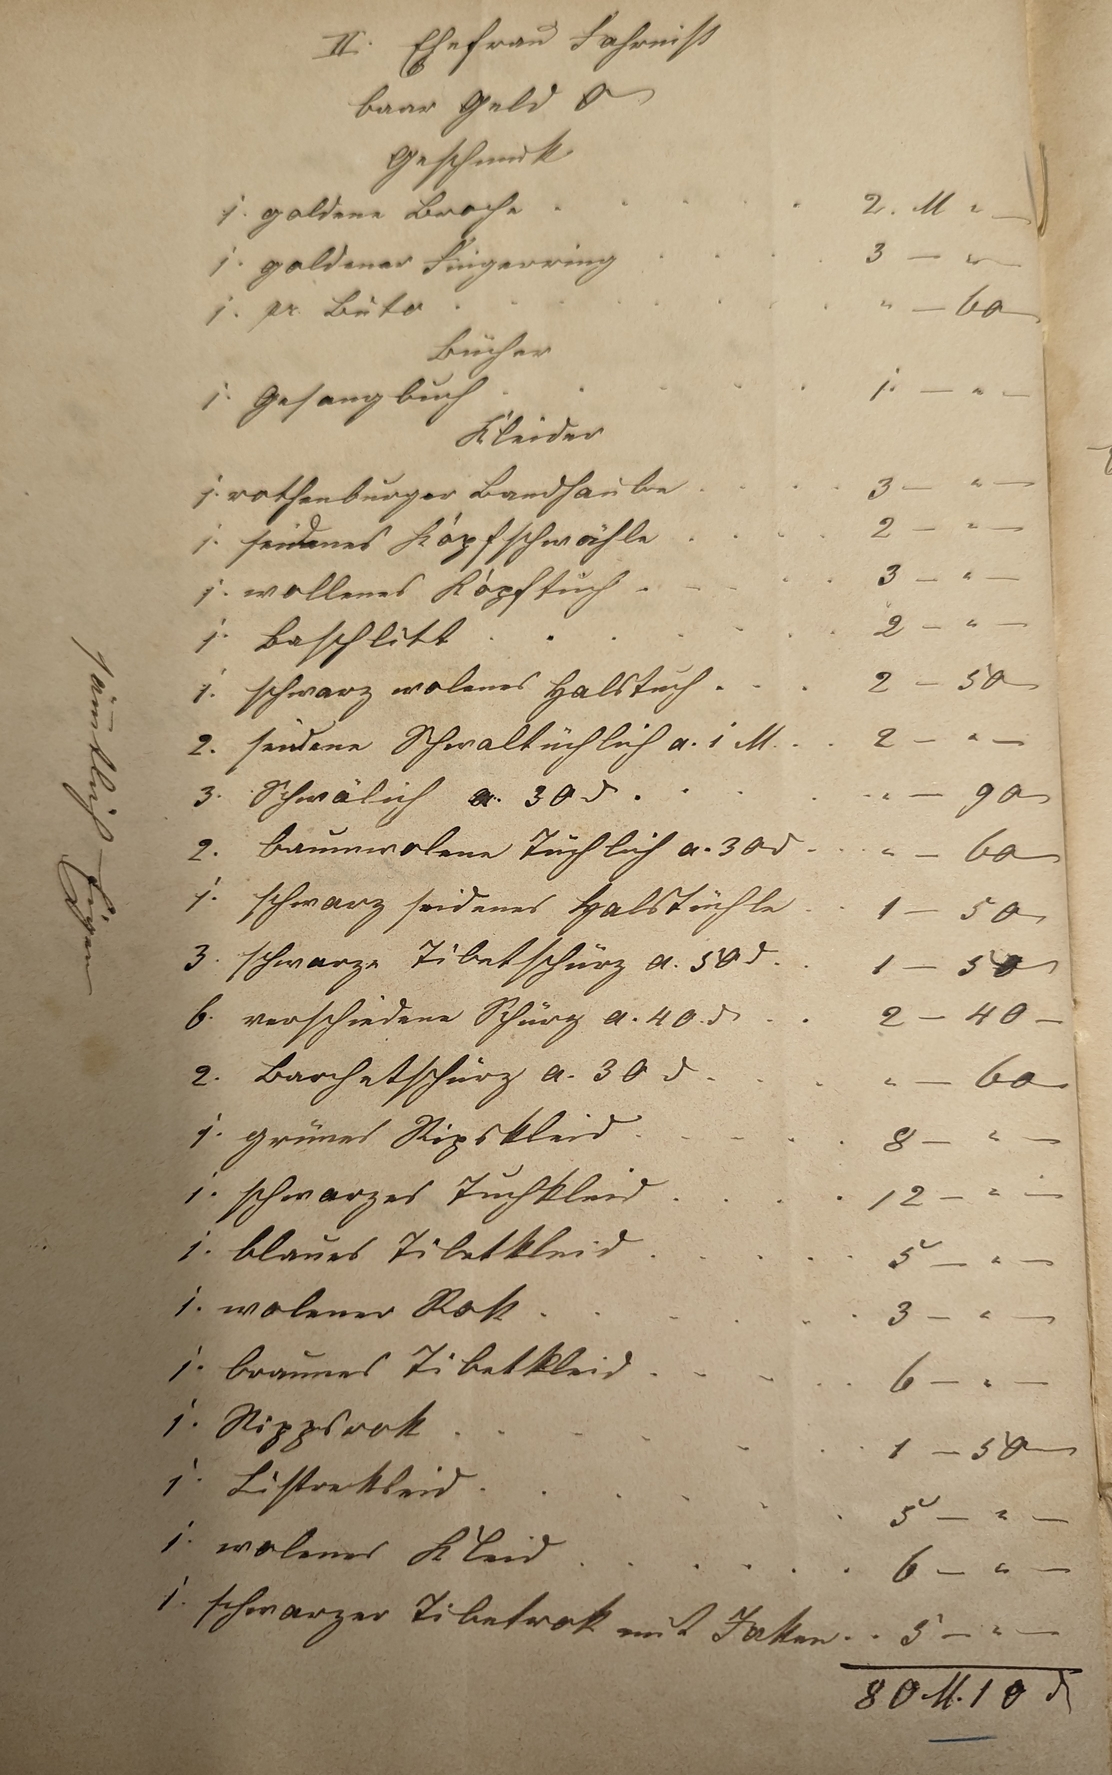 II. Ehefrau Fahrniß
baar Geld 0
Geschmuk
1. goldene Broche . . . . . 2. M "
1. goldener Fingerring . . . . 3 — "
1. pr. Buto . . . . . . . " — 60
Bücher
1. Gesangbuch . . . . . . 1. — " —
Kleider
1. rothenburger Bandhaube . . . . 3 — " —
1. seidenes Kopfschwähle . . . . 2 — " —
1. wollenes Kopftuch . . . . 3 — " —
1. Baschlitt . . . . . . . 2 — " —
1. schwarz wolenes Halstuch . . . 2 — 50
2. seidene Schwaltüchlich a. 1 M. . . 2 — " —
3. Schwälich a. 30 d . . . . . " — 90
2. baumwolene Tüchlich a. 30 d . . . " — 60
1. schwarz seidenes Halstüchle . . 1 — 50
3. schwarze Tibetschürz a. 50 d. . 1 — 50
6. verschiedene Schürz a. 40. d . . 2 — 40 —
2. Barchetschürz a. 30 d . . . " — 60
1. grünes Ripskleid . . . . . 8 — " —
1. schwarzes Tuchkleid . . . . 12 — " —
1. blaues Tibetkleid . . . . . 5 — " —
1. wolener Rok . . . . . . 3 — " —
1. braunes Tibetkleid . . . . . 6 — " —
1. Rippsrok . . . . . . 1 — 50
1. Listrekleid . . . . . . 5 — " —
1. wolenes Kleid . . . . . . 6 — " —
1. schwarzer Tibetrok mit Jakken . . 5 — " —
80 M. 10 d
sämtlich Eigen